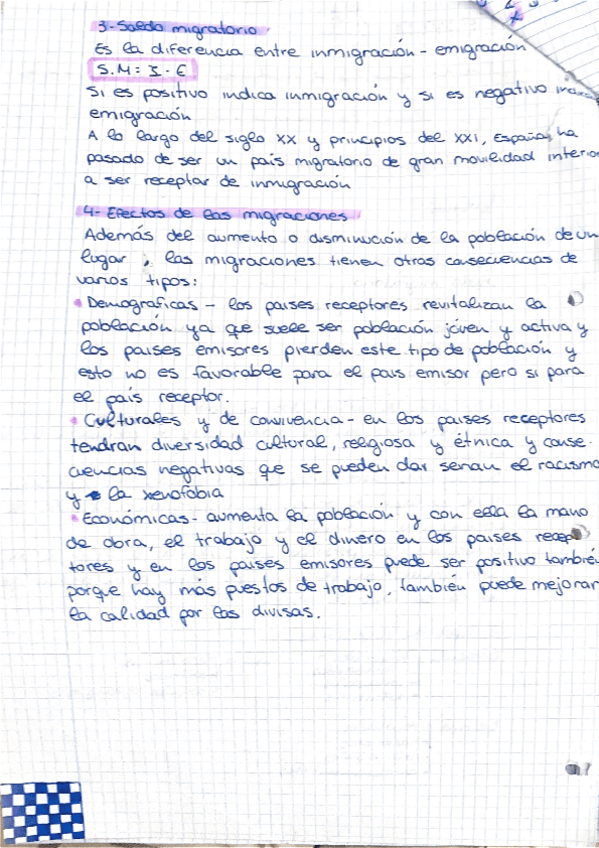 3-Saldo migratorio
Es la diferencia entre inmigración - emigración
S.M = I - E
Si es positivo indica inmigración y si es negativo
emigración
A lo largo del siglo XX y principios del XXI, España ha
pasado de ser un país migratorio de gran movilidad interior
a ser receptor de inmigración
4- Efectos de las migraciones
Además del aumento o disminución de la población de un
lugar, las migraciones tienen otras consecuencias de
varios tipos:
• Demográficas - los países receptores revitalizan la
población ya que suele ser población jóven y activa y
los países emisores pierden este tipo de población y
esto no es favorable para el país emisor pero si para
el país receptor.
• Culturales y de convivencia - en los países receptores
tendran diversidad cultural, religiosa y étnica y conse-
cuencias negativas que se pueden dar serían el racismo
y la xenofobia
• Económicas - aumenta la población y con ella la mano
de obra, el trabajo y el dinero en los países recep
tores y en los países emisores puede ser positivo también
porque hay más puestos de trabajo, también puede mejorar
la calidad por las divisas.